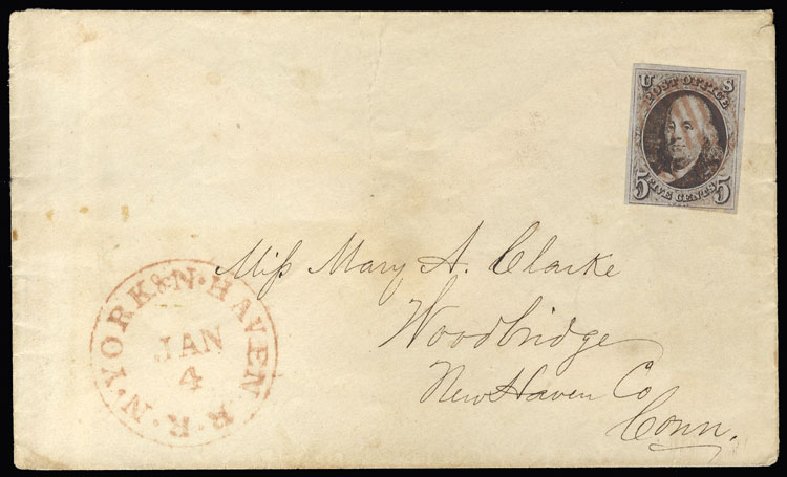 U S
POST OFFICE
5 FIVE CENTS 5
N·YORK & N·HAVEN R·R·
JAN
4
Miss Mary A. Clarke
Woodbridge
New Haven Co
Conn.